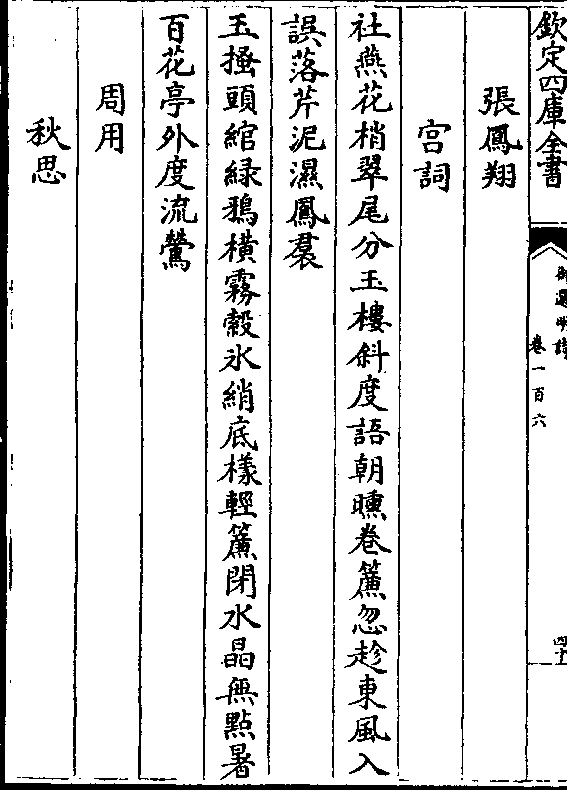 欽定四庫全書
御選明詩
卷一百六
四十
張鳳翔
宫詞
社燕花梢翠尾分玉樓斜度語朝曛卷簾忽趁東風入
誤落芹泥濕鳳裠
玉搔頭綰緑鵶横霧縠氷綃底樣輕簾閉水晶無點暑
百花亭外度流鶯
周用
秋思